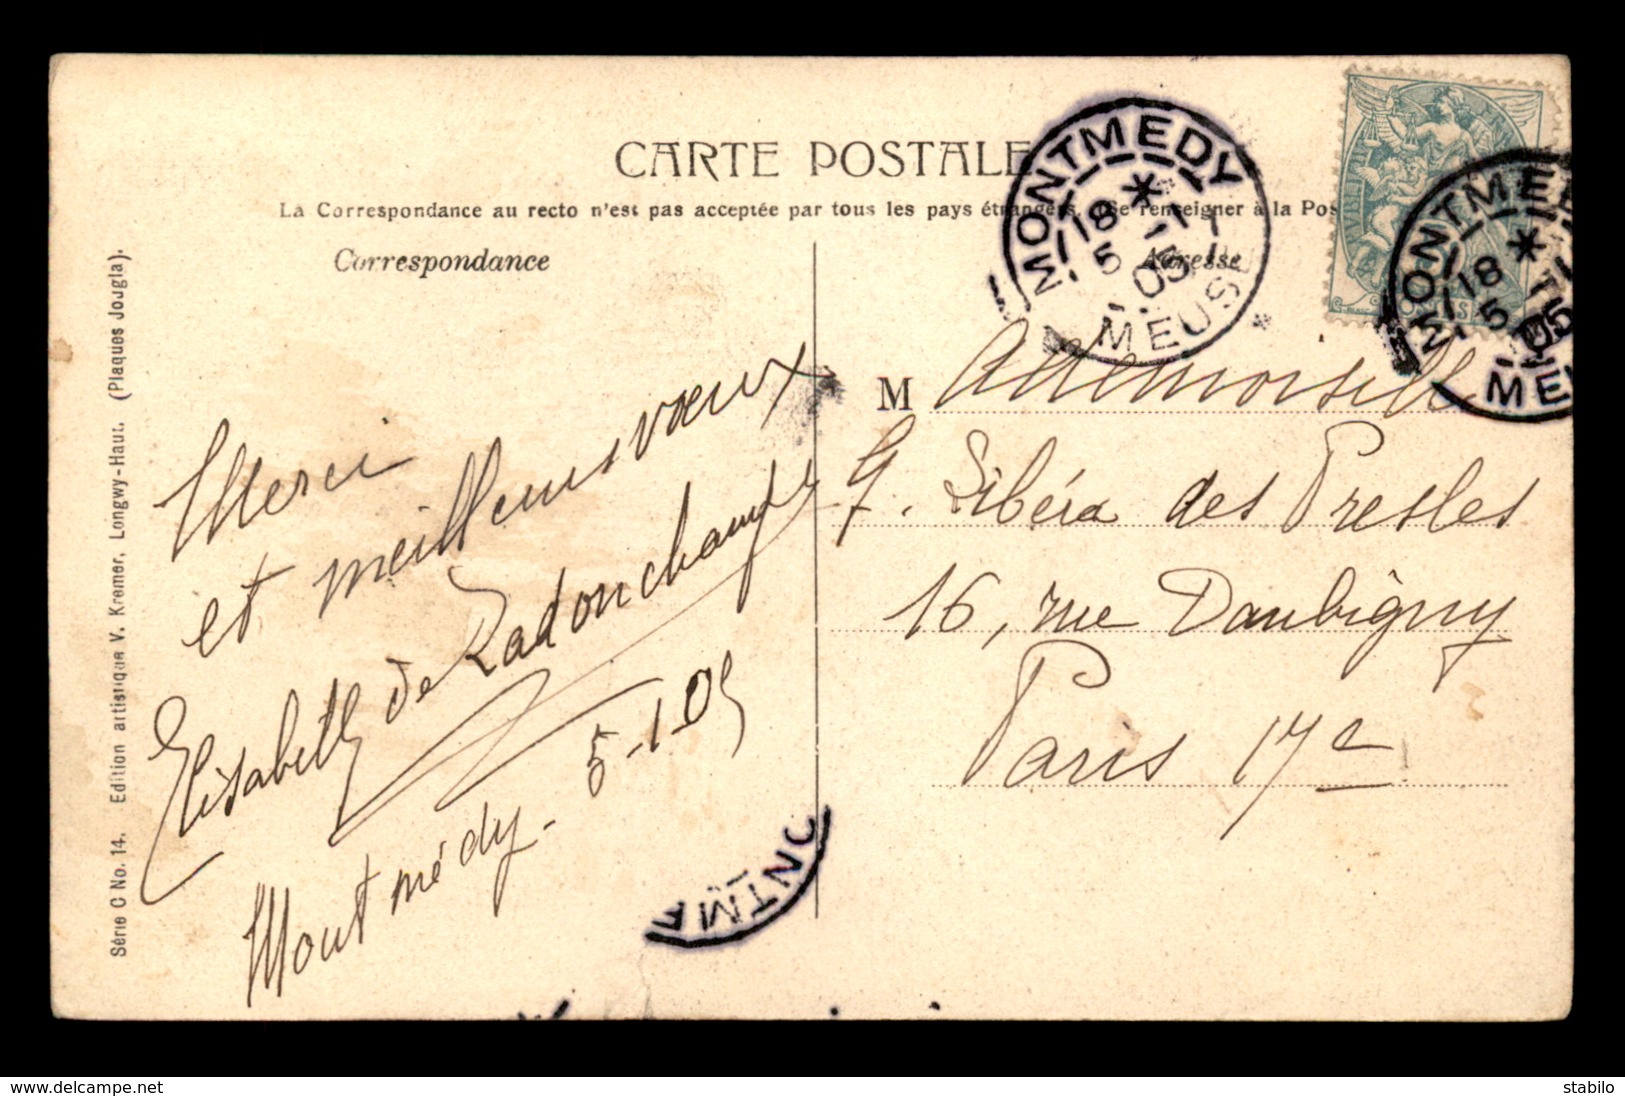 CARTE POSTALE
La Correspondance au recto n'est pas acceptée par tous les pays étrangers. (Se renseigner à la Pos
Correspondance
Adresse
MONTMEDY
18 * 1
5 -1
05
MEUSE
MONTME
18 *
5 -1
05
MEU
Merci
et meilleurs vœux
Elisabeth de Radonchamps
Montmédy. 5-1-05
M ademoiselle
G. Libéra des Presles
16, rue Daubigny
Paris 17e
Série C No. 14. Edition artistique V. Kremer, Longwy-Haut. (Plaques Jougla).
www.delcampe.net
stabilo